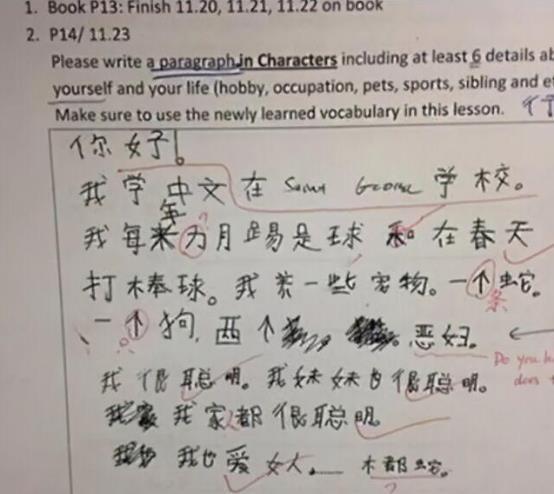 1. Book P13: Finish 11.20, 11.21, 11.22 on book
2. P14/ 11.23
Please write a paragraph in Characters including at least 6 details ab
yourself and your life (hobby, occupation, pets, sports, sibling and e
Make sure to use the newly learned vocabulary in this lesson.
你好!
我学中文在 Saint George 学校。
年
我每 月踢是球和在春天
打棒球。我养一些宠物。一个蛇。
条
一个狗, 西个
我很聪明。我妹妹白很聪明。
我家都很聪明。
我也爱女人 木都蛇。
Do you
does